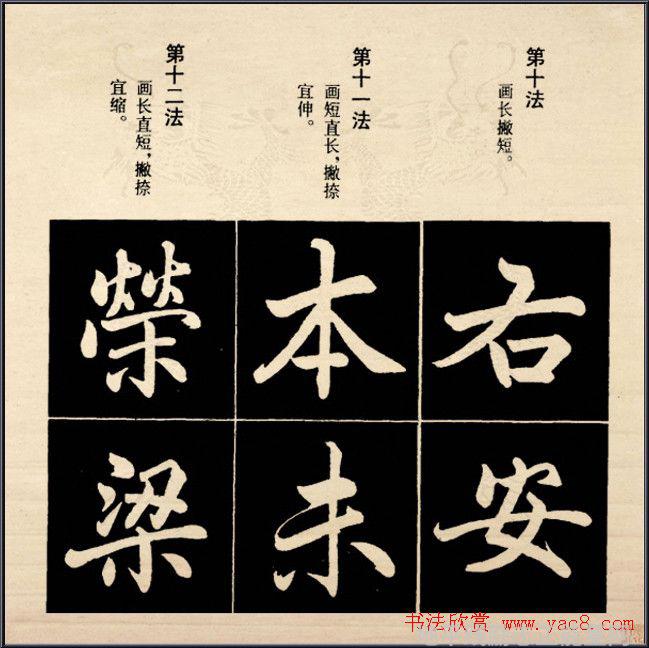 第十法
画长撇短。
右
安
第十一法
画短直长，撇捺
宜伸。
本
未
第十二法
画长直短，撇捺
宜缩。
榮
梁
书法欣赏 www.yac8.com